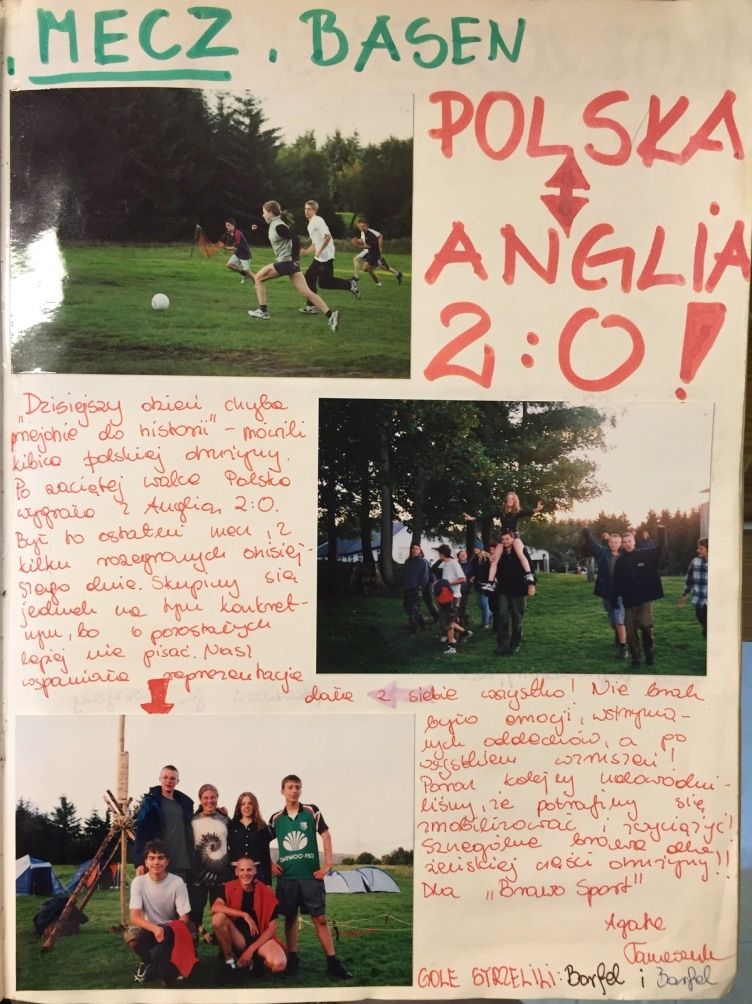 . MECZ . BASEN
POLSKA
ANGLIA
2:0!
"Dzisiejszy dzień chyba
przejdzie do historii" - mówili
kibice polskiej drużyny.
Po zaciętej walce Polska
wygrała z Anglią 2:0.
Był to ostatni mecz z
kilku rozegranych dzisiej-
szego dnia. Skupimy się
jednak na tym konkret-
nym, bo o pozostałych
lepiej nie pisać. Nasz
wspaniała reprezentacja
dała z siebie wszystko! Nie brak
było emocji, wstrzyma-
nych oddechów, a po
wszystkim wzruszeń!
Poraz kolejny udowodni-
liśmy, że potrafimy się
zmobilizować i zwyciężyć!
Szczególne brawa dla
żeńskiej części drużyny!!
Dla "Brawo Sport"
Agata
GOLE STRZELILI: Barfel i Barfel
DAEWOO-FSO